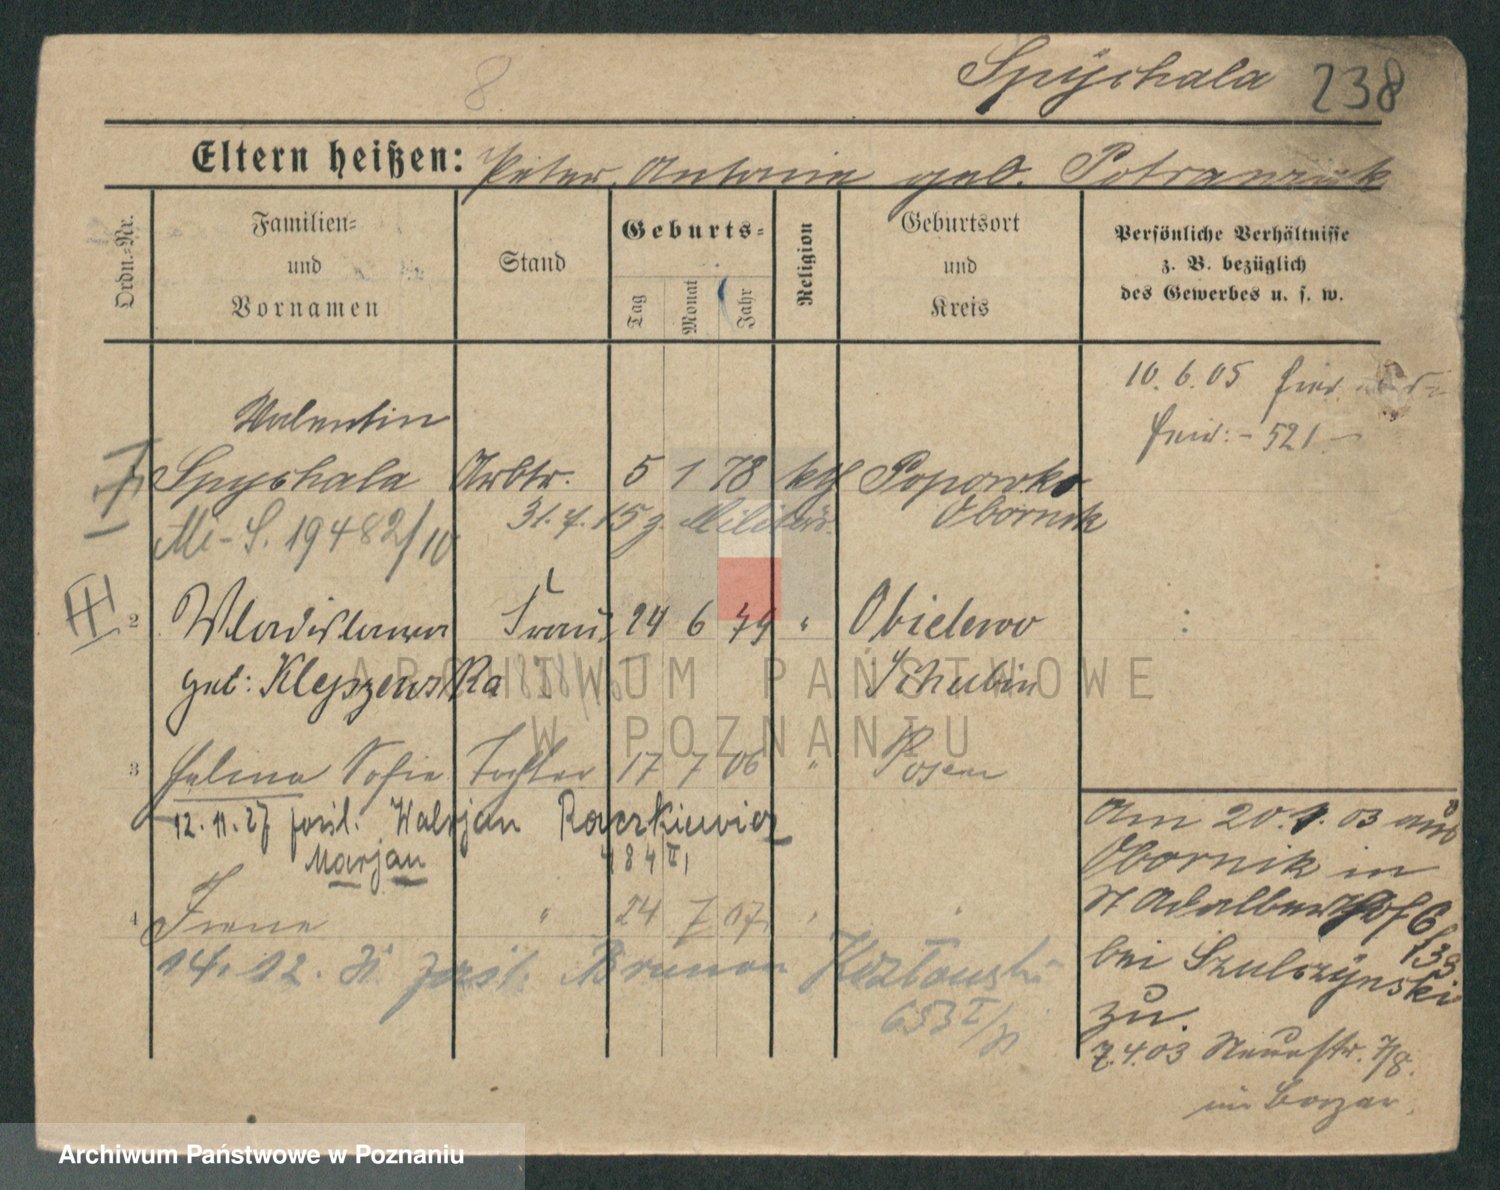 8
Spÿchala 238
Eltern heißen: Peter, Antonie geb. Potrawiak
Ordn.-Nr.
Familien-
und
Vornamen
Stand
Geburts-
Tag
Monat
Jahr
Religion
Geburtsort
und
Kreis
Persönliche Verhältnisse
z. B. bezüglich
des Gewerbes u. s. w.
10. 6. 05
521
Valentin
Spychala Arbtr. 5 1 78 kth Popowko
Obornik
Mi-S. 19482/10 31. 7. 15 z. Militär
2 Wladislawa Frau 24 6 79 " Obielewo
geb: Klepszewska Schubin
3 Helena Sofie Tochter 17 7 06 " Posen
12. 11. 27 posl. Walrjan Raczkiewicz
Marjan 484 II
4 Irene " 24 7 07 " "
14. 12. 31 posl. Brunon Kozłowski
653 I/31
Am 20. 1. 03 aus
Obornik in
St Adalberthof 6
bei Szulczÿnski
zu.
7. 4. 03 Neuestr. 7/8.
im Bazar.
ARCHIWUM PAŃSTWOWE
W POZNANIU
Archiwum Państwowe w Poznaniu